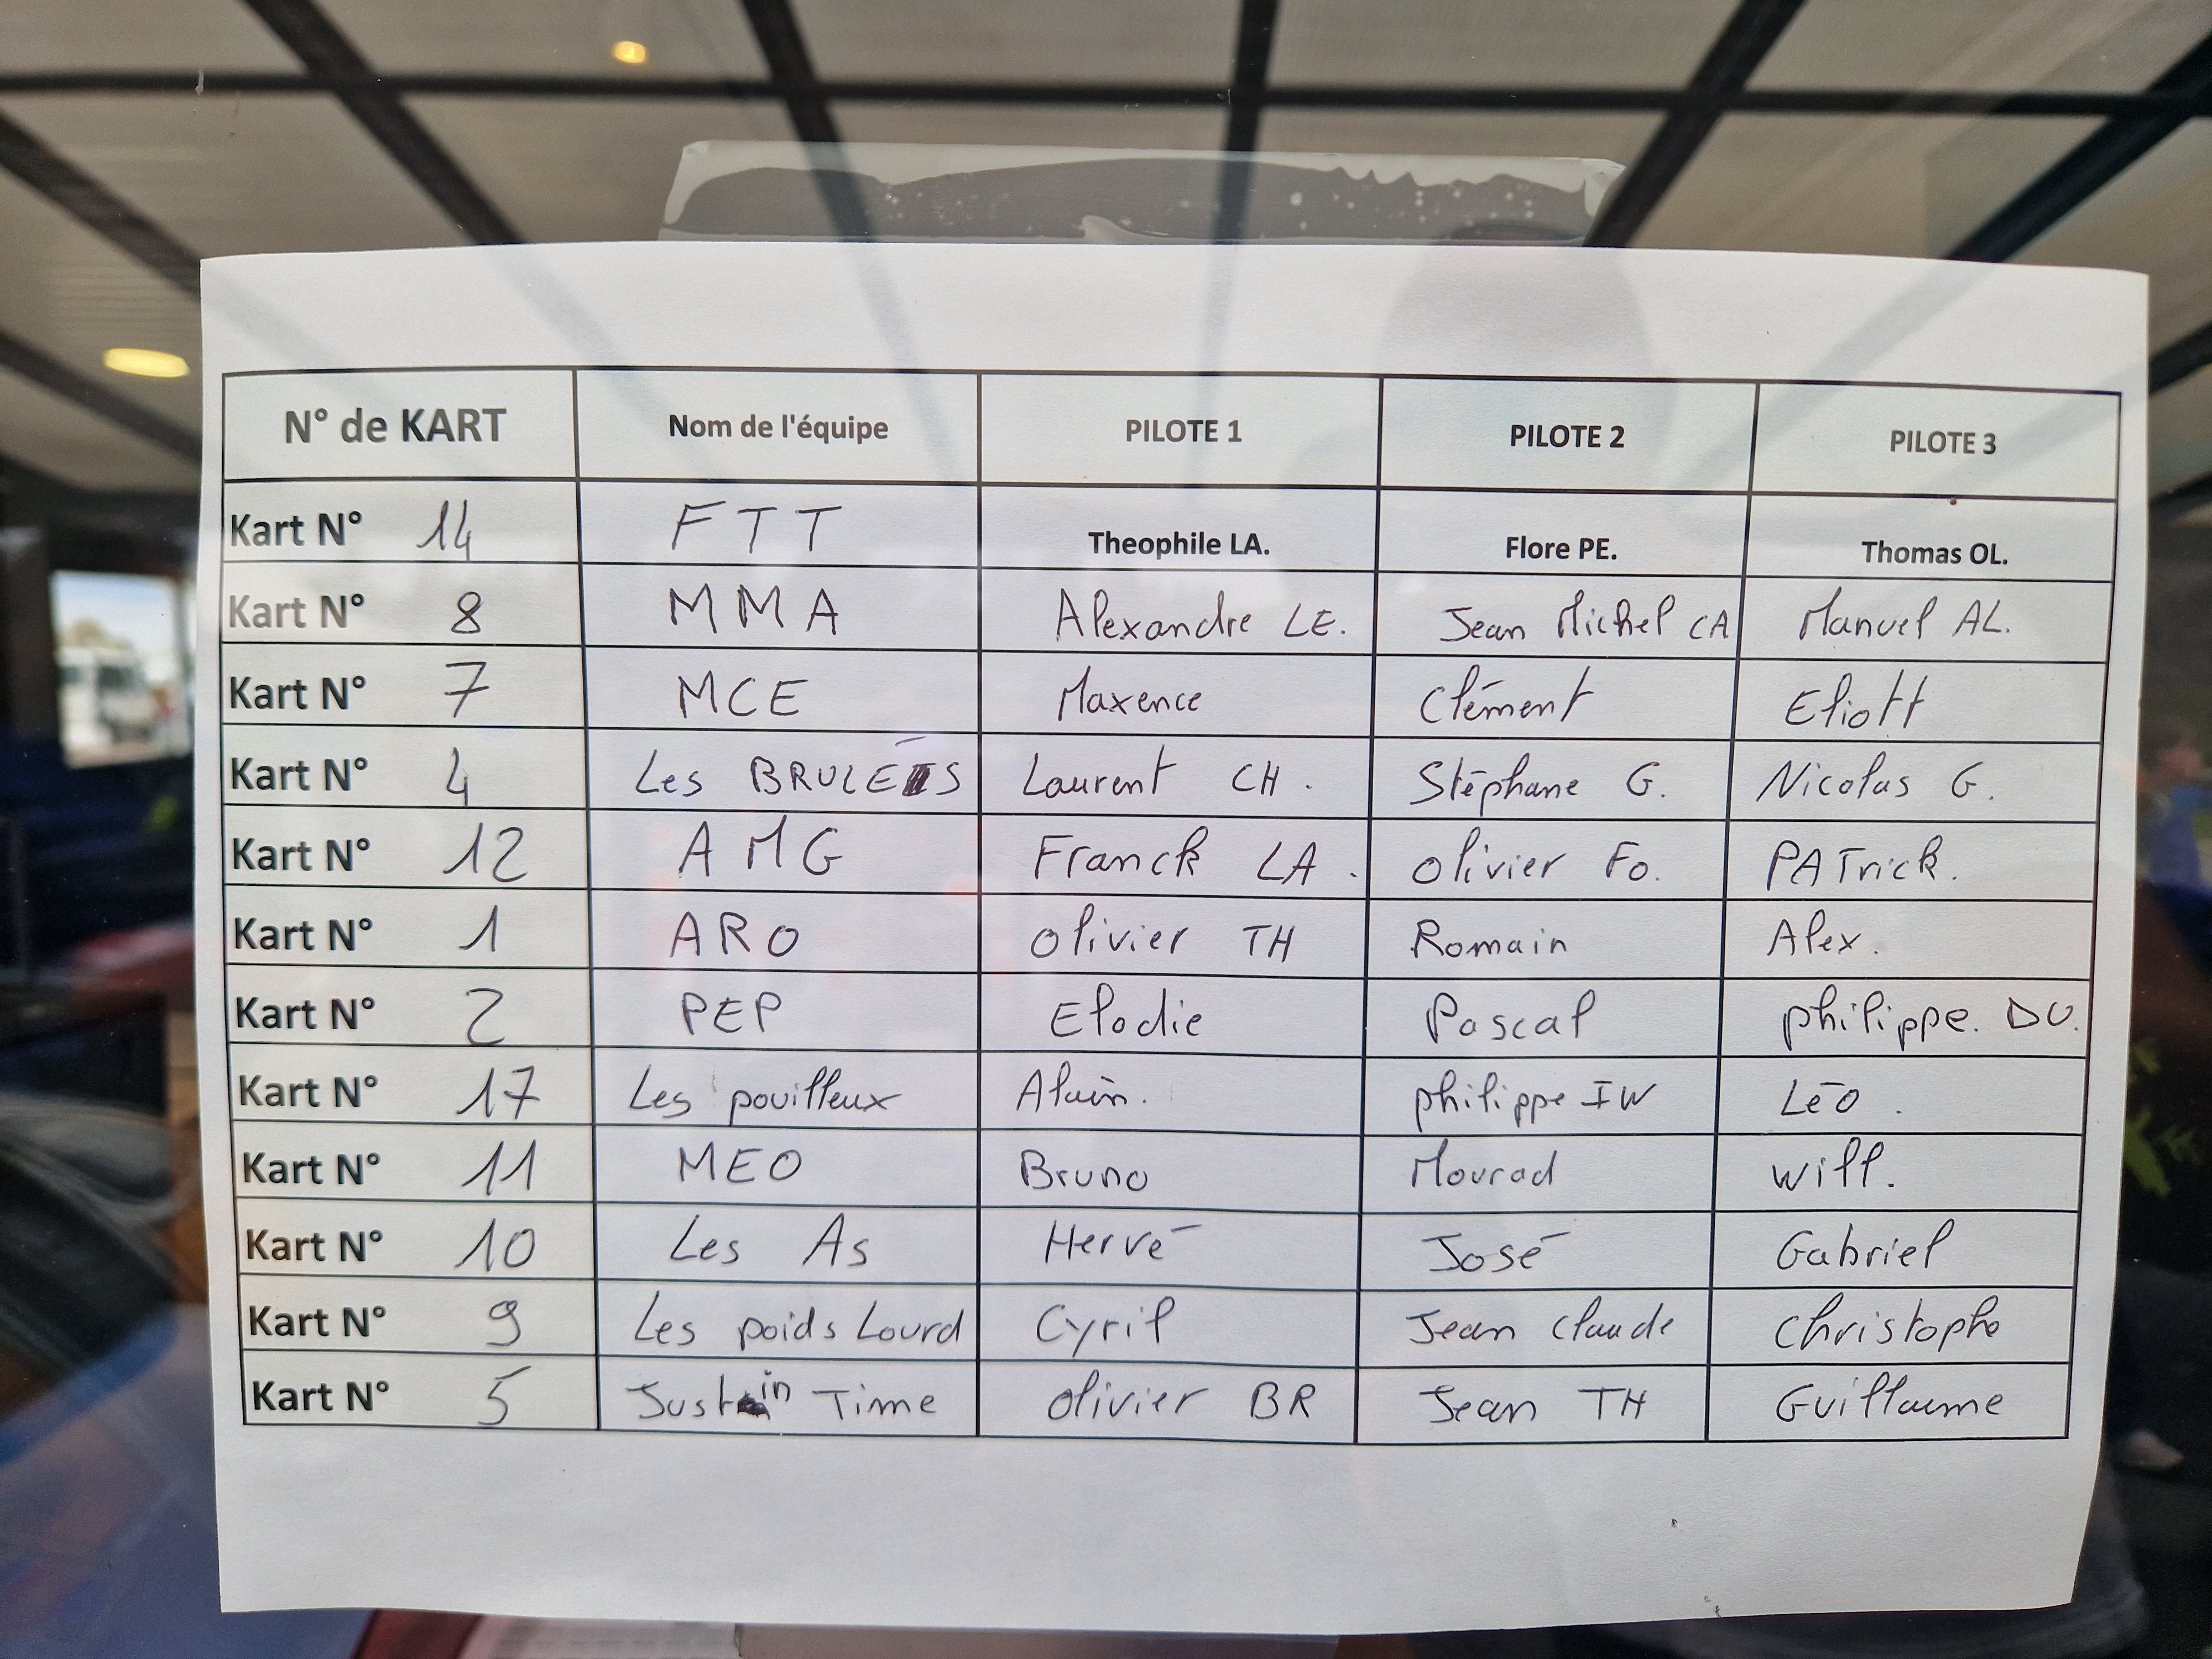 N° de KART Nom de l'équipe PILOTE 1 PILOTE 2 PILOTE 3
Kart N° 14 FTT Theophile LA. Flore PE. Thomas OL.
Kart N° 8 MMA Alexandre LE. Jean Michel CA Manuel AL.
Kart N° 7 MCE Maxence Clément Eliott
Kart N° 4 Les BRULÉS Laurent CH. Stéphane G. Nicolas G.
Kart N° 12 AMG Franck LA. Olivier Fo. PATrick.
Kart N° 1 ARO Olivier TH Romain Alex.
Kart N° 2 PEP Elodie Pascal philippe. DU.
Kart N° 17 Les pouilleux Alain. philippe IW LÉO.
Kart N° 11 MEO Bruno Mourad Will.
Kart N° 10 Les As Hervé José Gabriel
Kart N° 9 Les poids Lourd Cyril Jean claude christophe
Kart N° 5 Just in Time Olivier BR Jean TH Guillaume